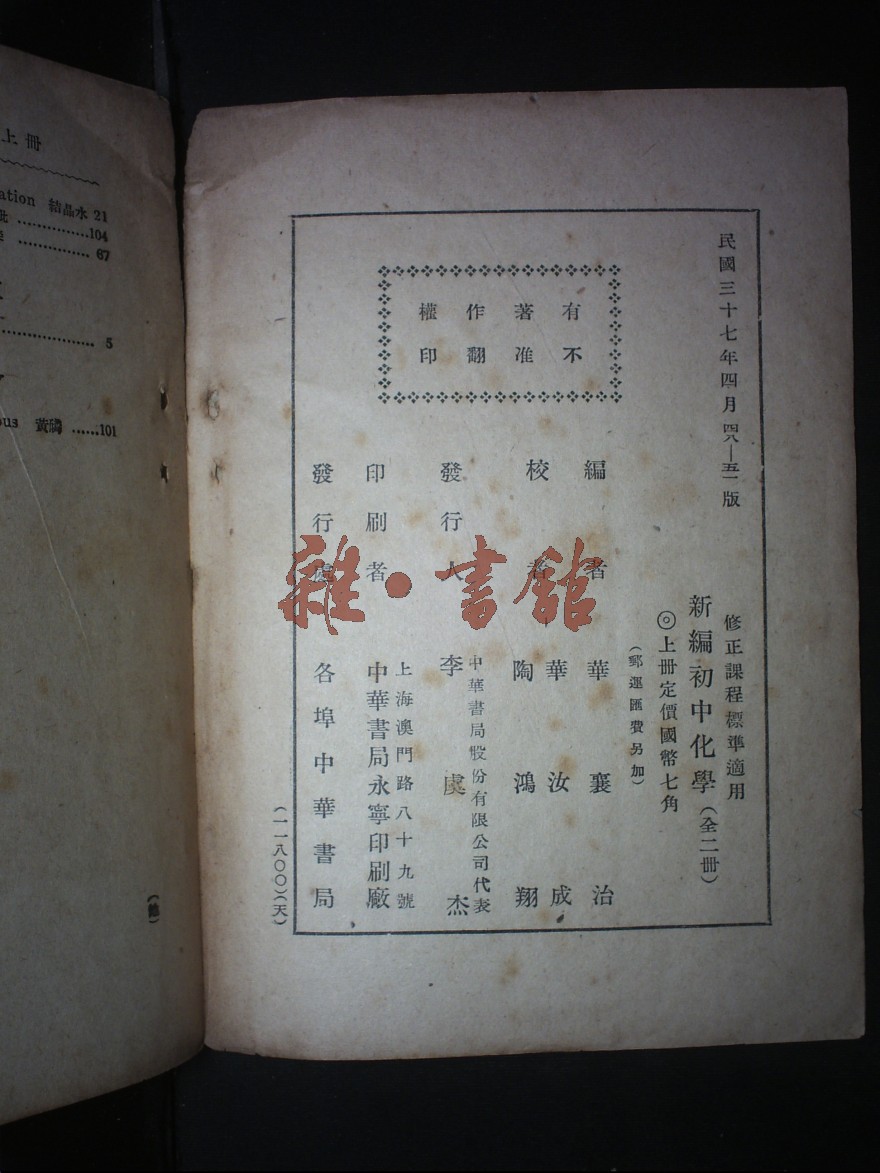 民國三十七年四月四八—五一版
修正課程標準適用
新編初中化學(全二冊)
◎上冊定價國幣七角
(郵運匯費另加)
有著作權
不准翻印
編者 華襄治
華汝成
校者 陶鴻翔
發行人 中華書局股份有限公司代表
李虞杰
印刷者 上海澳門路八十九號
中華書局永寧印刷廠
發行處 各埠中華書局
(一一八〇〇)(天)
雜·書館
上冊
ation 結晶水 21
104
67
5
ous 黃磷 ......101